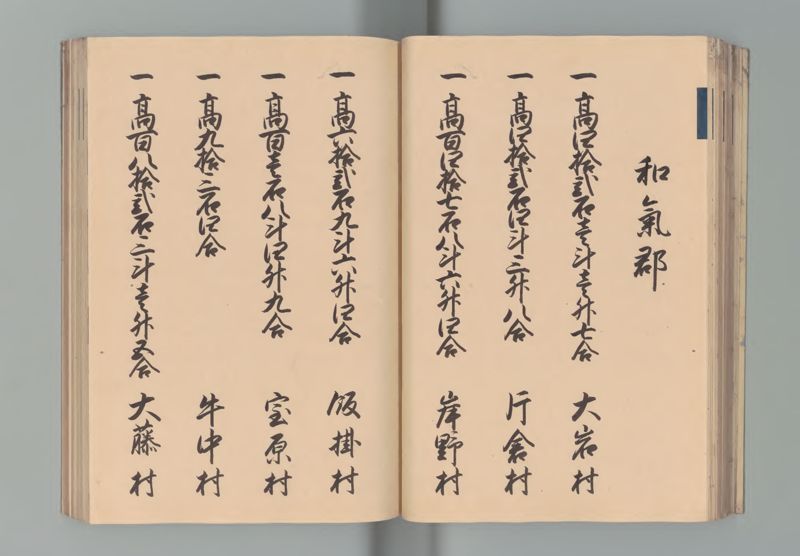 和氣郡
一 高四拾弐石壱斗壱升七合 大岩村
一 高四拾弐石四斗三升八合 片倉村
一 高百四拾七石八斗六升四合 岸野村
一 高六拾弐石九斗六升四合 飯掛村
一 高百壱石八斗四升九合 宝原村
一 高九拾三石四合 牛中村
一 高百八拾弐石三斗壱升五合 大藤村